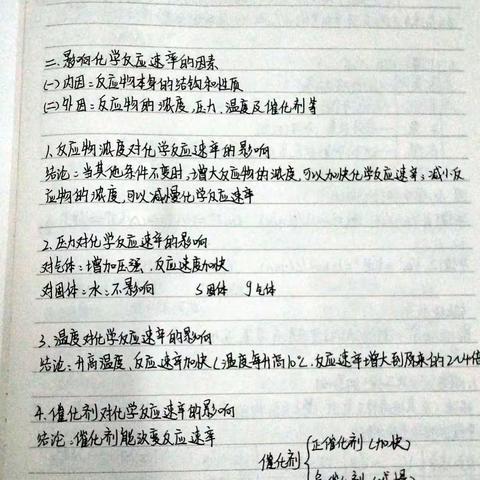 二.影响化学反应速率的因素
(一)内因:反应物本身的结构和性质
(二)外因:反应物的浓度,压力,温度及催化剂等
1.反应物浓度对化学反应速率的影响
结论:当其他条件不变时,增大反应物的浓度,可以加快化学反应速率;减小反
应物的浓度,可以减慢化学反应速率
2.压力对化学反应速率的影响
对气体:增加压强,反应速度加快
对固体:水:不影响 S固体 g气体
3.温度对化学反应速率的影响
结论:升高温度,反应速率加快(温度每升高10℃,反应速率增大到原来的2~4倍
4.催化剂对化学反应速率的影响
结论:催化剂能改变反应速率
催化剂{正催化剂(加快)